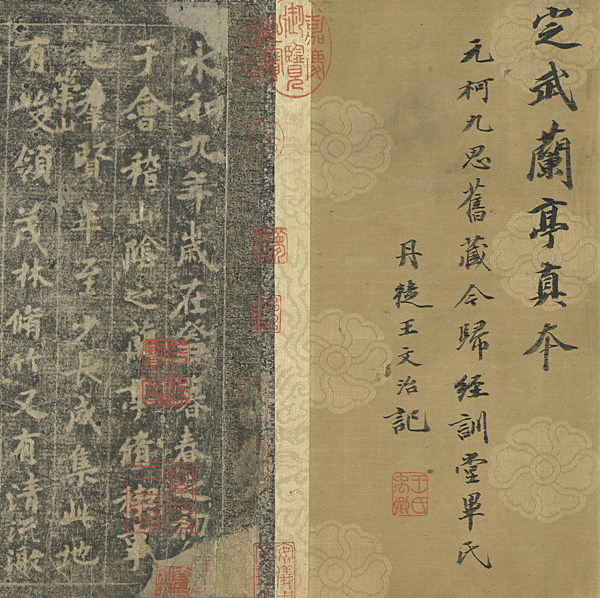 定武蘭亭真本
元柯九思舊藏今歸經訓堂畢氏
丹徒王文治記
王氏禹卿
永和九年歲在癸暮春之初
于會稽山陰之蘭亭脩禊事
也羣賢畢至少長咸集此地
崇山
有峻領茂林脩竹又有清流激